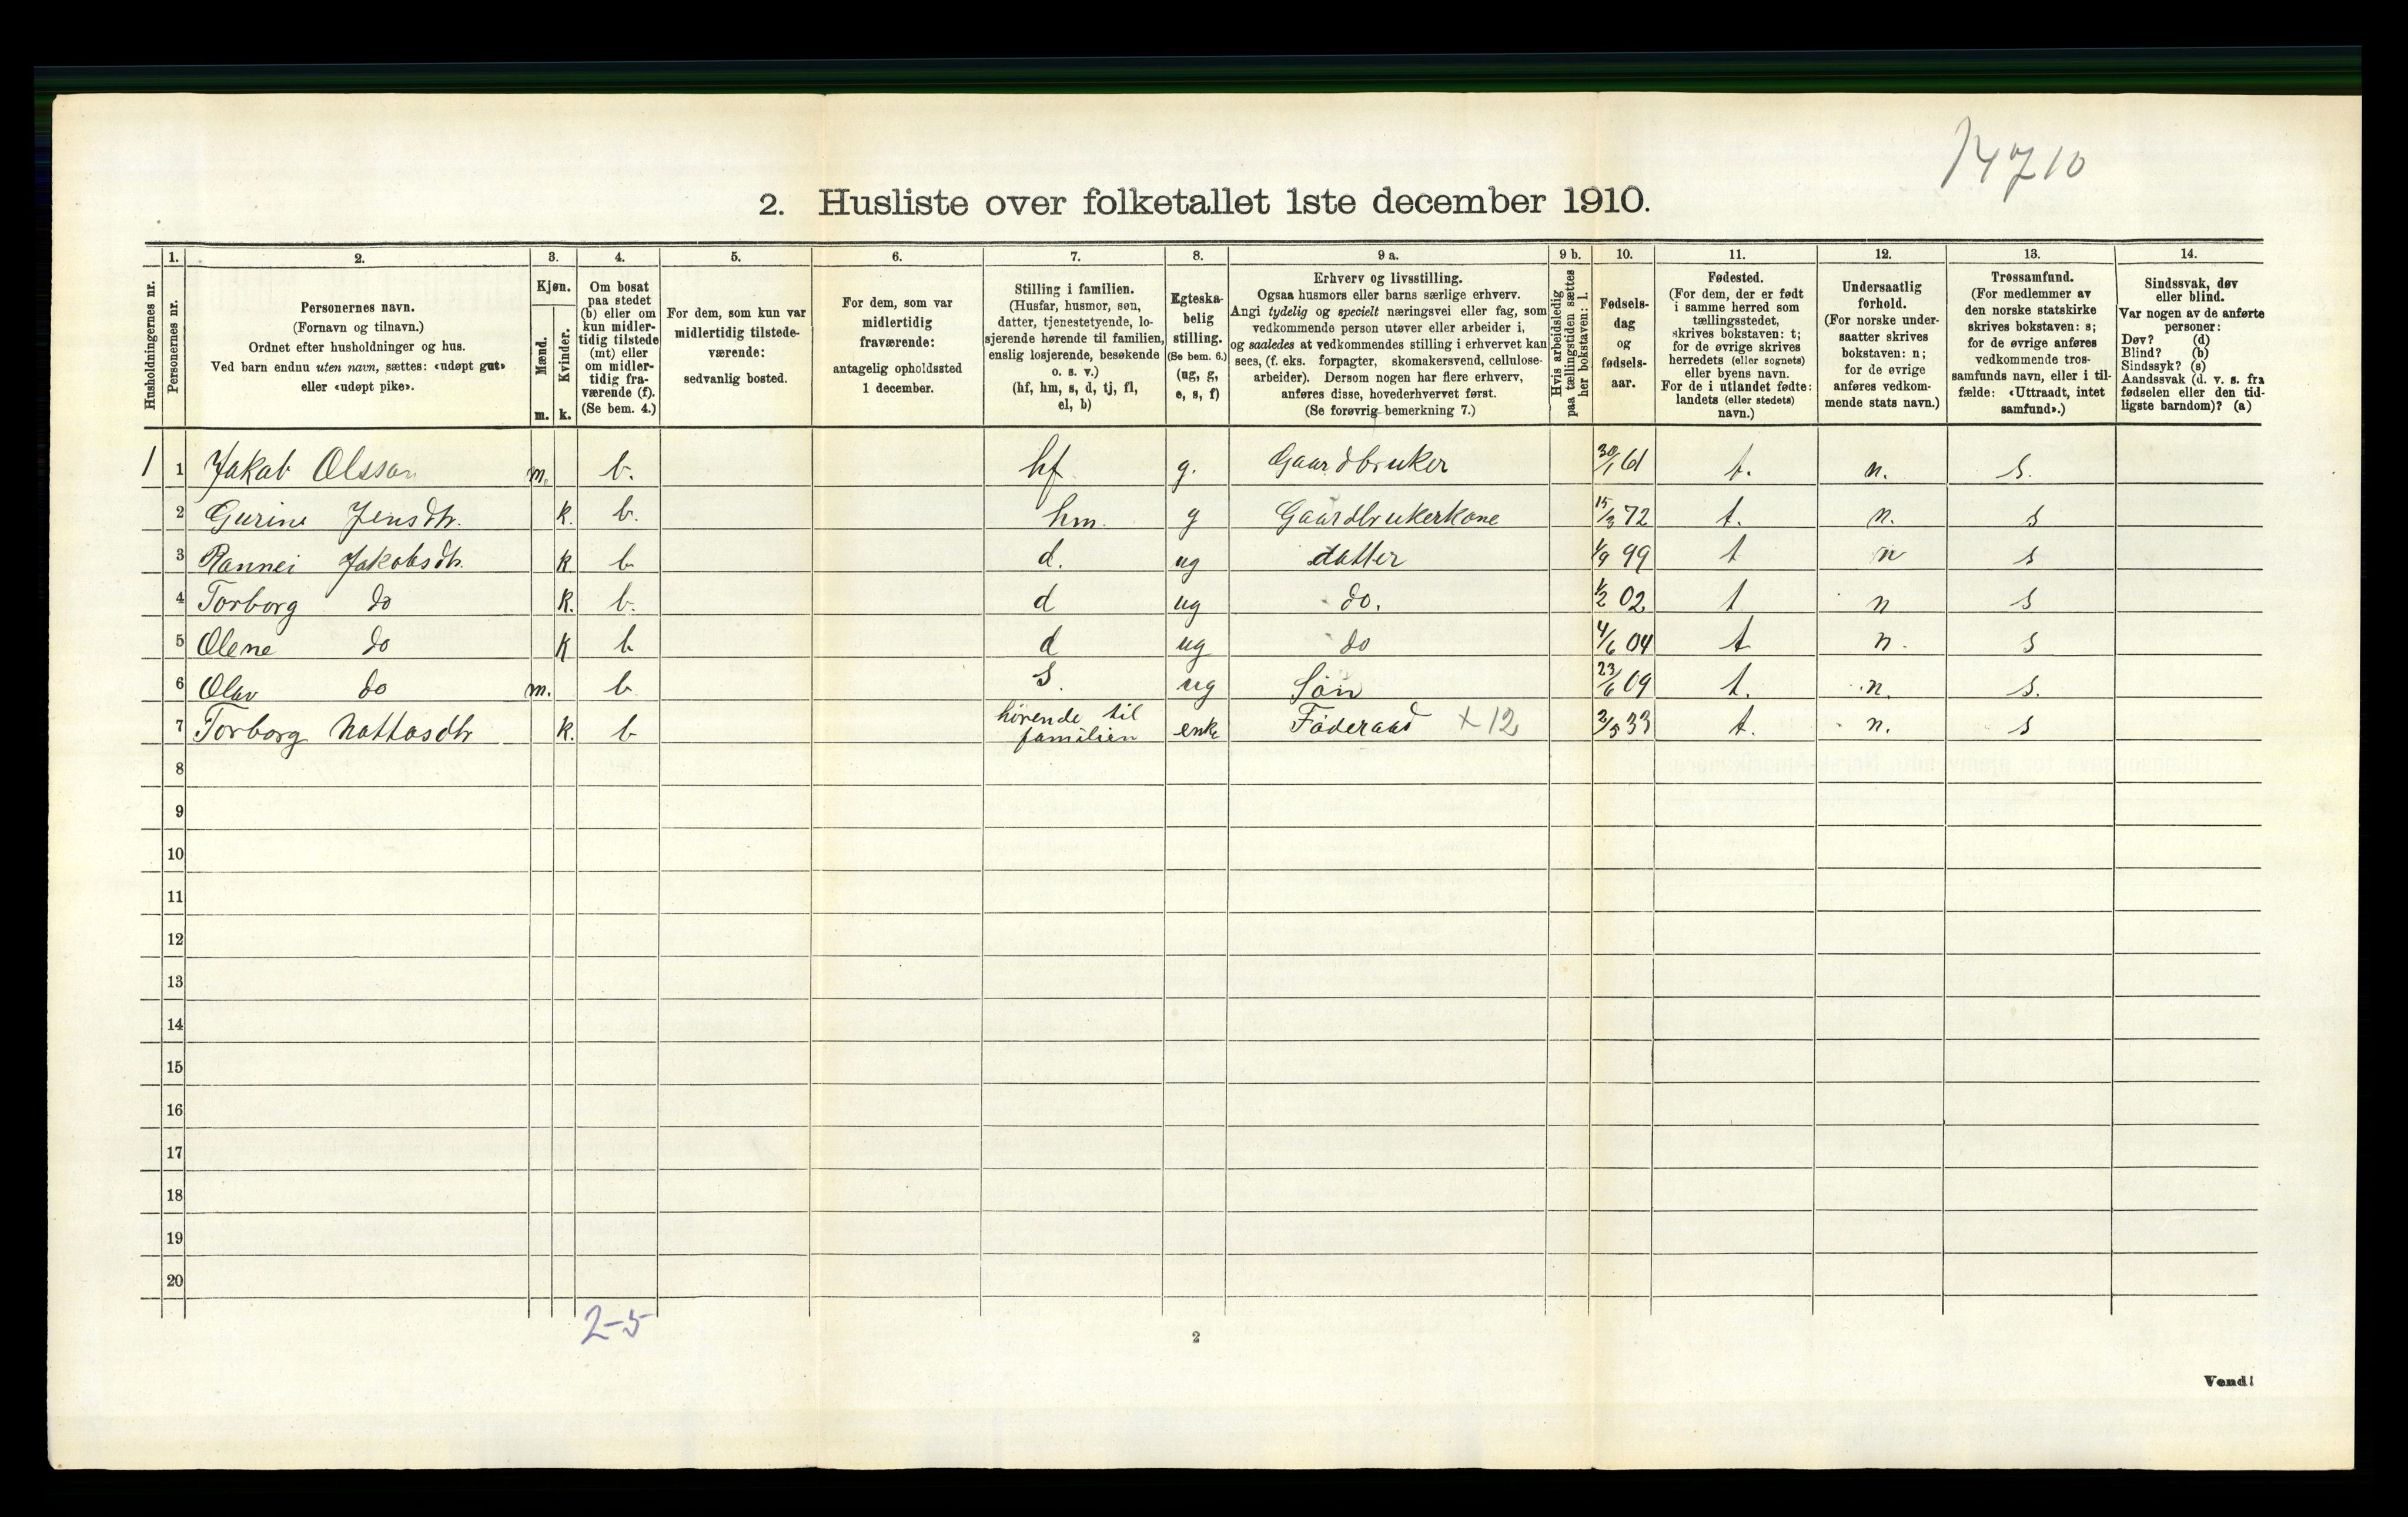 14710
2. Husliste over folketallet 1ste december 1910.
1. 2. 3. 4. 5. 6. 7. 8. 9 a. 9 b. 10. 11. 12. 13. 14.
Husholdningernes nr.
Personernes nr.
Personernes navn.
(Fornavn og tilnavn.)
Ordnet efter husholdninger og hus.
Ved barn endnu uten navn, sættes: «udøpt gut»
eller «udøpt pike».
Kjøn.
Mænd.
Kvinder.
m. k.
Om bosat
paa stedet
(b) eller om
kun midler-
tidig tilstede
(mt) eller
om midler-
tidig fra-
værende (f).
(Se bem. 4.)
For dem, som kun var
midlertidig tilstede-
værende:
sedvanlig bosted.
For dem, som var
midlertidig
fraværende:
antagelig opholdssted
1 december.
Stilling i familien.
(Husfar, husmor, søn,
datter, tjenestetyende, lo-
sjerende hørende til familien,
enslig losjerende, besøkende
o. s. v.)
(hf, hm, s, d, tj, fl,
el, b)
Egteska-
belig
stilling.
(Se bem. 6.)
(ug, g,
e, s, f)
Erhverv og livsstilling.
Ogsaa husmors eller barns særlige erhverv.
Angi tydelig og specielt næringsvei eller fag, som
vedkommende person utøver eller arbeider i,
og saaledes at vedkommendes stilling i erhvervet kan
sees, (f. eks. forpagter, skomakersvend, cellulose-
arbeider). Dersom nogen har flere erhverv,
anføres disse, hovederhvervet først.
(Se forøvrig bemerkning 7.)
Hvis arbeidsledig
paa tællingstiden sættes
her bokstaven: l.
Fødsels-
dag
og
fødsels-
aar.
Fødested.
(For dem, der er født
i samme herred som
tællingsstedet,
skrives bokstaven: t;
for de øvrige skrives
herredets (eller sognets)
eller byens navn.
For de i utlandet fødte:
landets (eller stedets)
navn.)
Undersaatlig
forhold.
(For norske under-
saatter skrives
bokstaven: n;
for de øvrige
anføres vedkom-
mende stats navn.)
Trossamfund.
(For medlemmer av
den norske statskirke
skrives bokstaven: s;
for de øvrige anføres
vedkommende tros-
samfunds navn, eller i til-
fælde: «Uttraadt, intet
samfund».)
Sindssvak, døv
eller blind.
Var nogen av de anførte
personer:
Døv? (d)
Blind? (b)
Sindssyk? (s)
Aandssvak (d. v. s. fra
fødselen eller den tid-
ligste barndom)? (a)
1 1 Jakob Olsson m. b. hf g. Gaardbruker 30/1 61 t. n. s.
2 Gurine Jensdtr. k. b. hm. g Gaardbrukerkone 15/3 72 t. n. s
3 Rannei Jakobsdtr. k b d. ug datter 1/9 99 t n s
4 Torborg do k. b. d ug do. 1/2 02 t n s
5 Olene do k b d ug do 4/6 04 t n. s
6 Olav do m. b s. ug Søn 23/6 09 t. n. s.
7 Torborg Nattasdtr k. b hørende til familien enke Føderaad × 12 2/5 33 t. n. s
8
9
10
11
12
13
14
15
16
17
18
19
20
2-5
2
Vend!